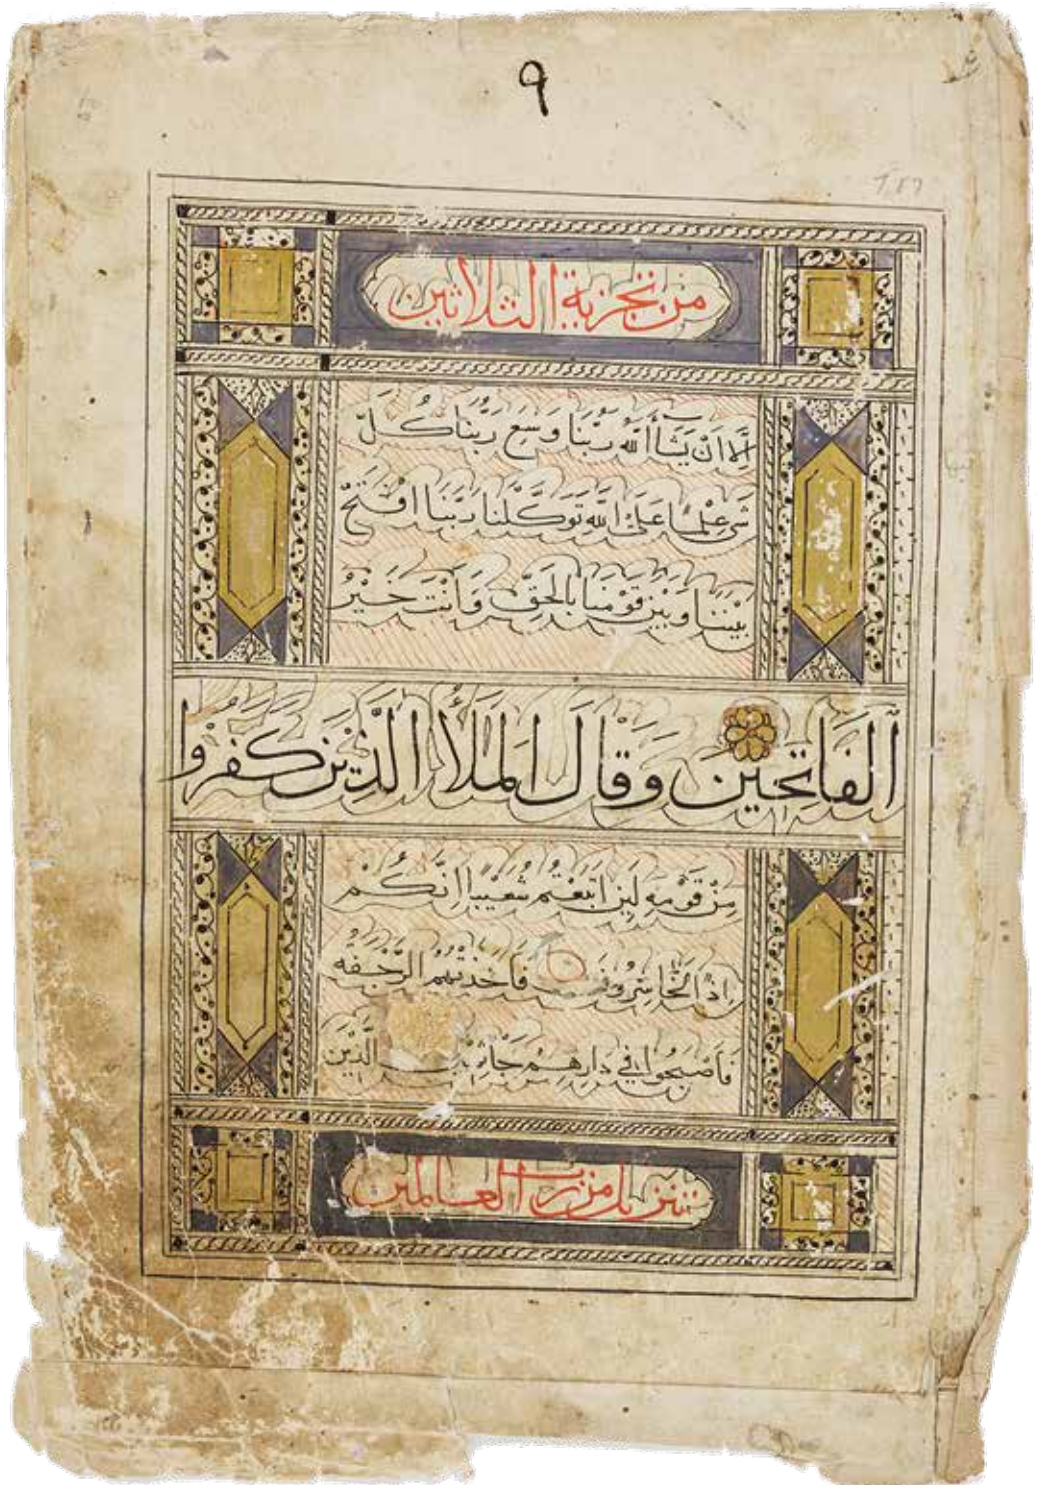 ٩
من تجزية الثلاثين
إِلَّا اَنْ يَشَاۤءَ اللّٰهُ رَبُّنَا وَسِعَ رَبُّنَا كُلَّ
شَیْءٍ عِلْمًا عَلَى اللّٰهِ تَوَكَّلْنَا رَبَّنَا افْتَحْ
بَيْنَنَا وَبَيْنَ قَوْمِنَا بِالْحَقِّ وَاَنْتَ خَيْرُ
الْفَاتِحِينَ وَقَالَ الْمَلَأُ الَّذِينَ كَفَرُوا
مِنْ قَوْمِهِ لَئِنِ اتَّبَعْتُمْ شُعَيْبًا اِنَّكُمْ
اِذًا لَخَاسِرُونَ فَاَخَذَتْهُمُ الرَّجْفَةُ
فَاَصْبَحُوا فِي دَارِهِمْ جَاثِمِينَ الَّذِينَ
تنزيل من رب العالمين